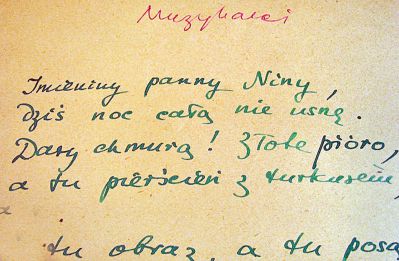 Muzykalci
Imieniny panny Niny,
dziś noc całą nie usnę.
Dary chmurą! Złote pióro,
a tu pierścień z turkusem,
a
tu obraz, a tu posą